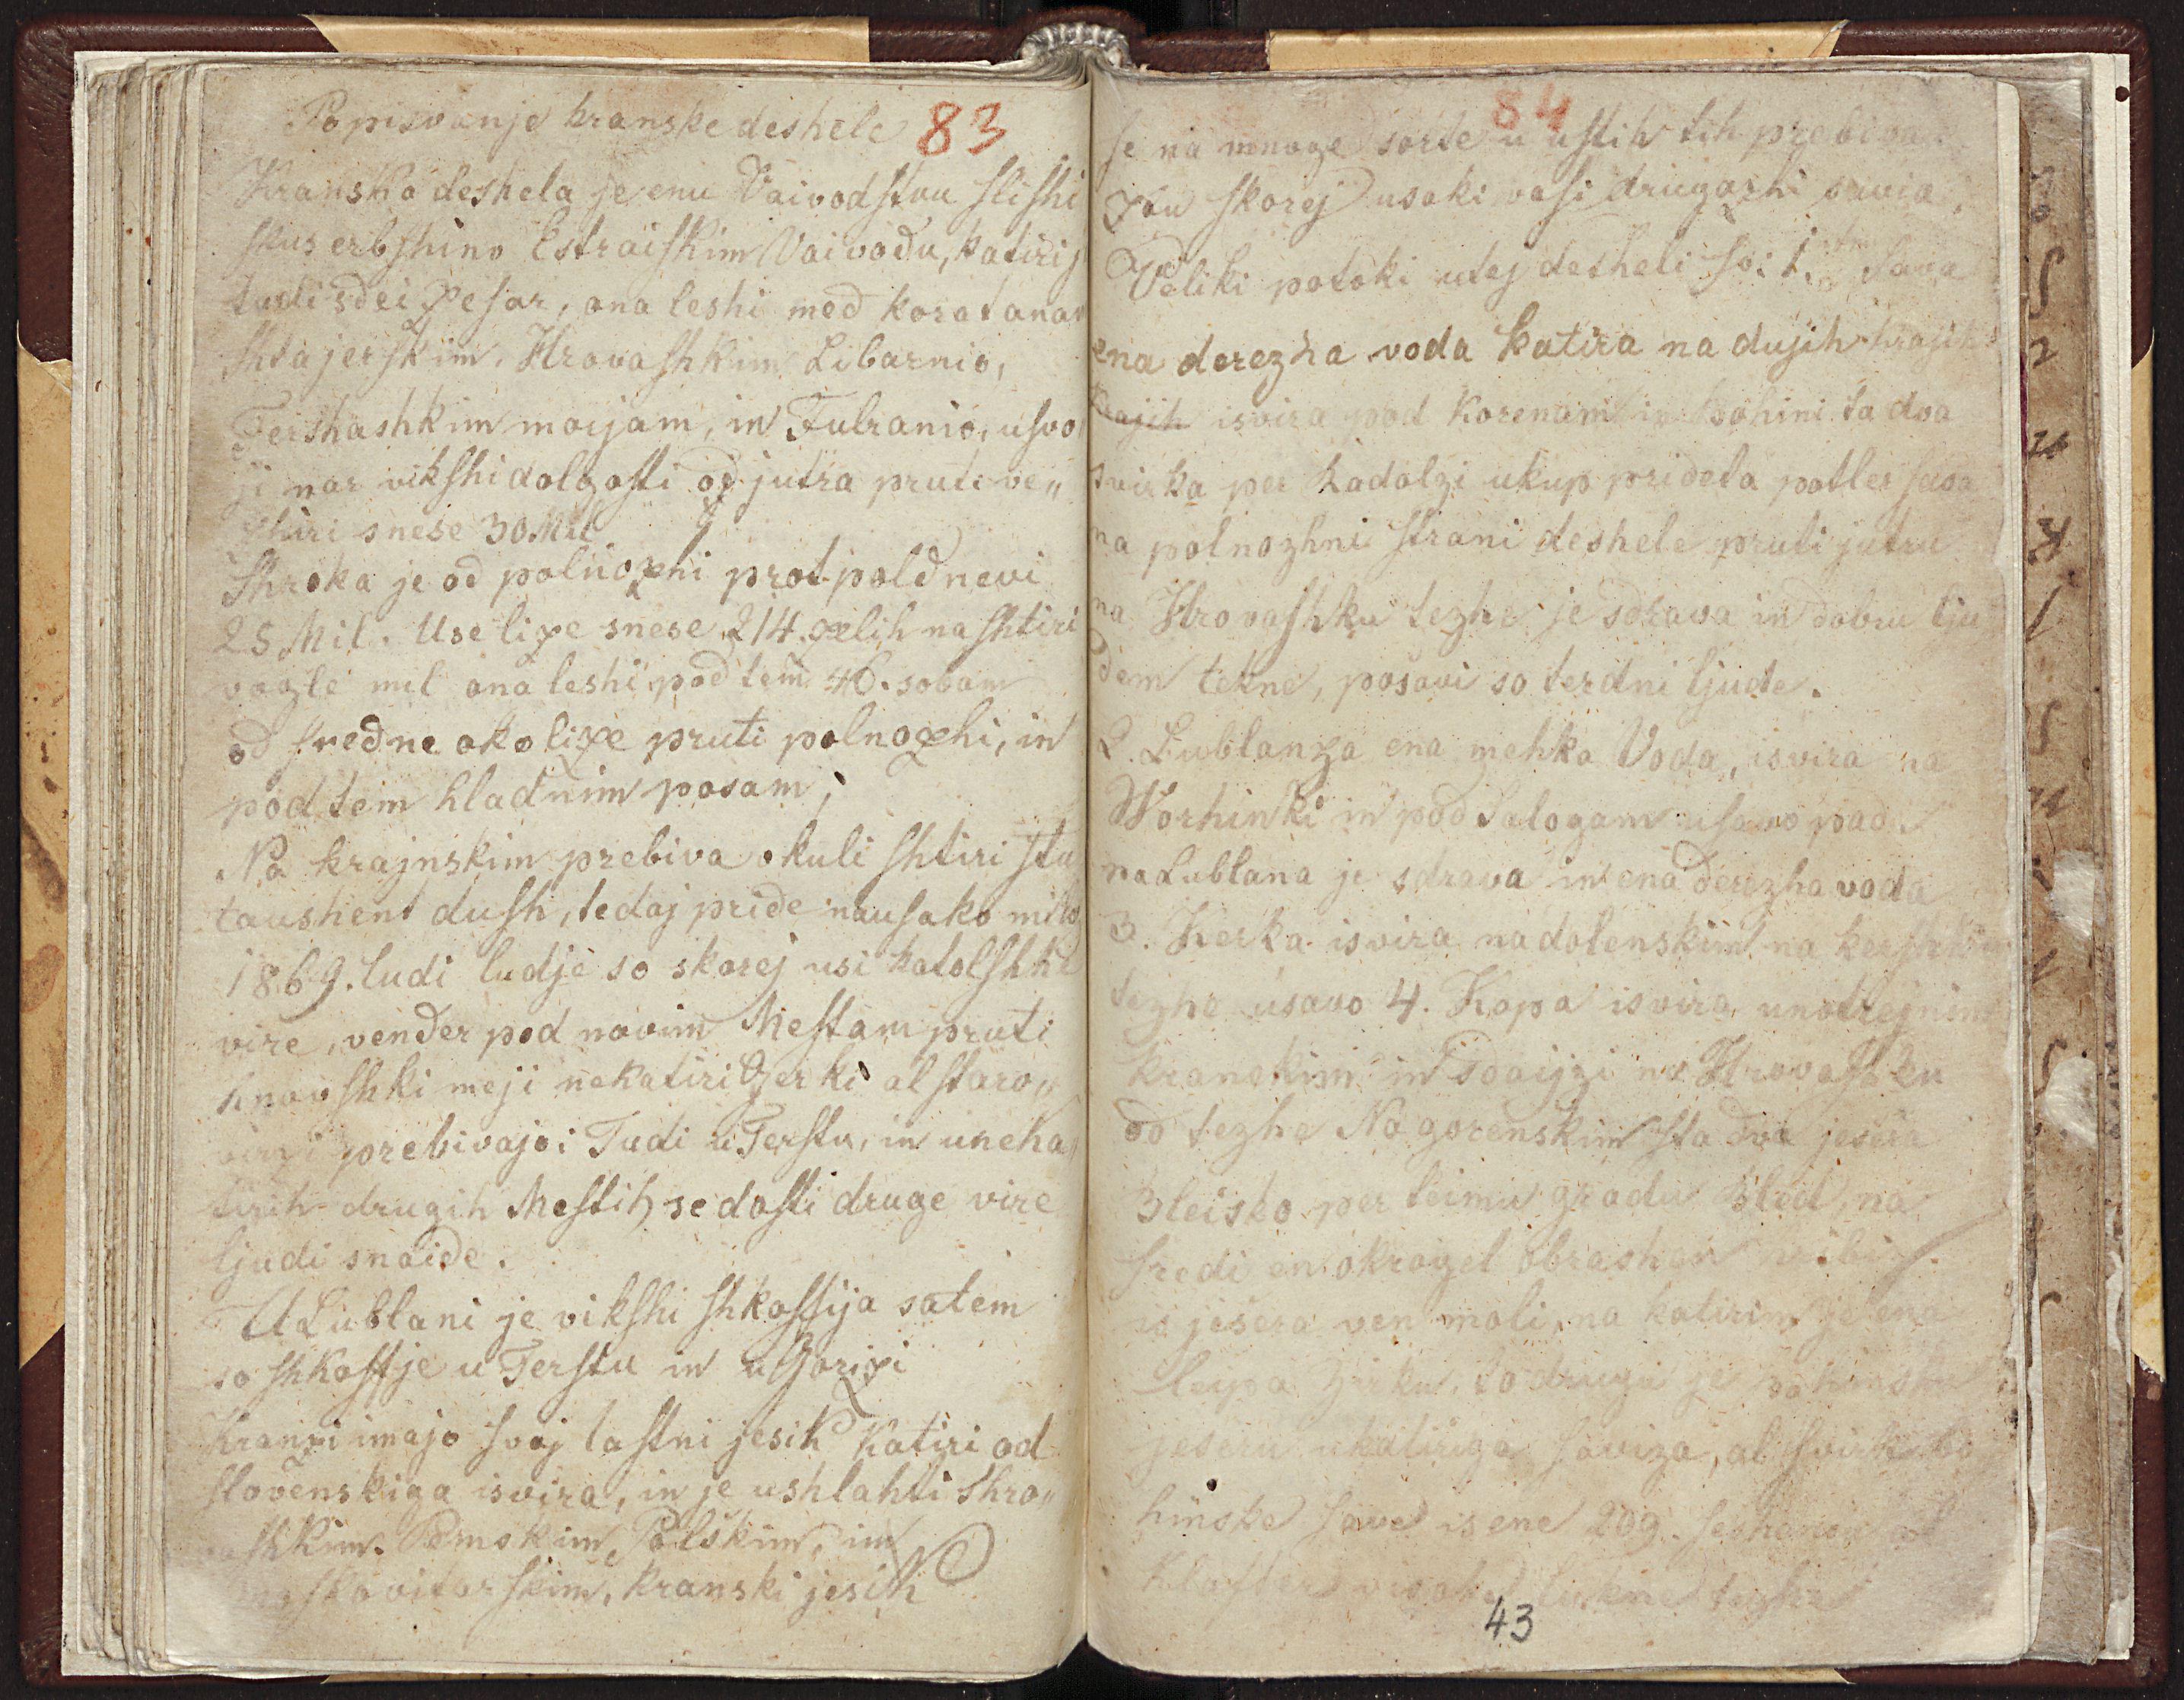 Popisvanje kranske deshele 83
Kranska deshela je enu Vaivodſtvu ſliſhi
skus erbſhino Eſtraiſkim Vaivodu, katiri j
tudi sdei Zeſar, ona leshi med koratanam
ſhtajerſkim, Hrovaſhkim Libarnio,
Tershashkim morjam, in Fulranio, uſvo
ji nar vikſhi dolgoſti od jutra pruti ve„
zhiri snese 30 Mil
Shroka je od polnozhi prot poldnevi
25 Mil. Use lize snese 214. zelih na ſhtiri
vogle mil ona leshi pod tem 46. sobam
od ſredne okolize pruti polnozhi, in
pod tem hladnim pasam;
Na krajnskim prebiva okuli ſhtiri ſtu
taushent duſh, tedaj pride na uſako milo
1869. ludi ludje so skorej usi katolſhki
vire, vender pod novim Meſtam pruti
hrovſhki meji nekatiri Gerki al ſtaro„
virzi prebivajo; Tudi u Terſtu, in uneka„
tirih drugih Meſtih se doſti druge vire
ljudi snaide.
U Lublani je vikſhi ſhkoffija satem
so ſhkoffje u Terſtu in u Gorizi
Kranzi imajo ſvoj laſtni jesik katiri od
ſlovenskiga isvira, in je ushlahti ſhro„
vaſhkim. Pemskim, Polskim, in
moskovitarſkim, kranski jesik
84
ſe na mnoge sorte u uſtih tih prebiva
zou ſkorej usaki vaſi drugazhi savia.
Veliki potoki utej desheli ſo: 1. Sava
ena derezha voda katira na dujih krajih
krajih isvira pod Korenam in Bohini ta dva
svirka per Radolzi ukup prideta potler ſava
na polnozhni ſtrani deshele pruti jutru
na Hrovaſhku tezhe je sdrava in dobru lju
dem tekne, posavi so terdni ljudje.
2. Lublanza ena mehka Voda, isvira na
Worhinki in pod Salogam uſavo pade
na Lublana je sdrava in ena derezha voda
3. Kerka isvira na dolenskim na kerſhkim
tezhe usavo 4. Kopa isvira unotrejnim
kranskim in sdaijzi na Hrovaſhku
od tezhe Na gorenskim ſta dva jesera
Bleisko per leimu gradu Bled, na
ſredi en okrogel obrashen hribz
is jesera ven moli, na katirim je ena
leipa Zirku, to drugu je bohinsku
jeseru ukatiriga ſaviza, al ſvirk bo
hinske ſave is ene 209. ſeshenov al
Klafter visoke lukne tezhe
43